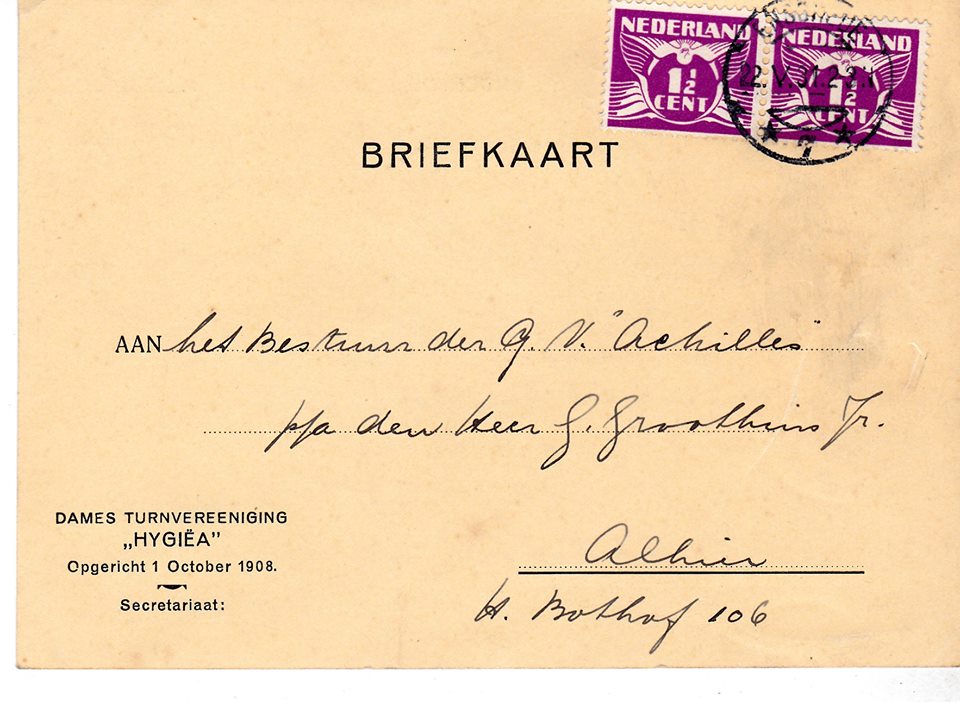 NEDERLAND NEDERLAND
1½ 1½
CENT CENT
22.V.31.2
7
BRIEFKAART
AAN het Bestuur der G. V. "Achilles"
p/a den Heer G. Groothuis Jr.
Alhier
H. Bothof 106
DAMES TURNVEREENIGING
„HYGIËA”
Opgericht 1 October 1908.
Secretariaat: